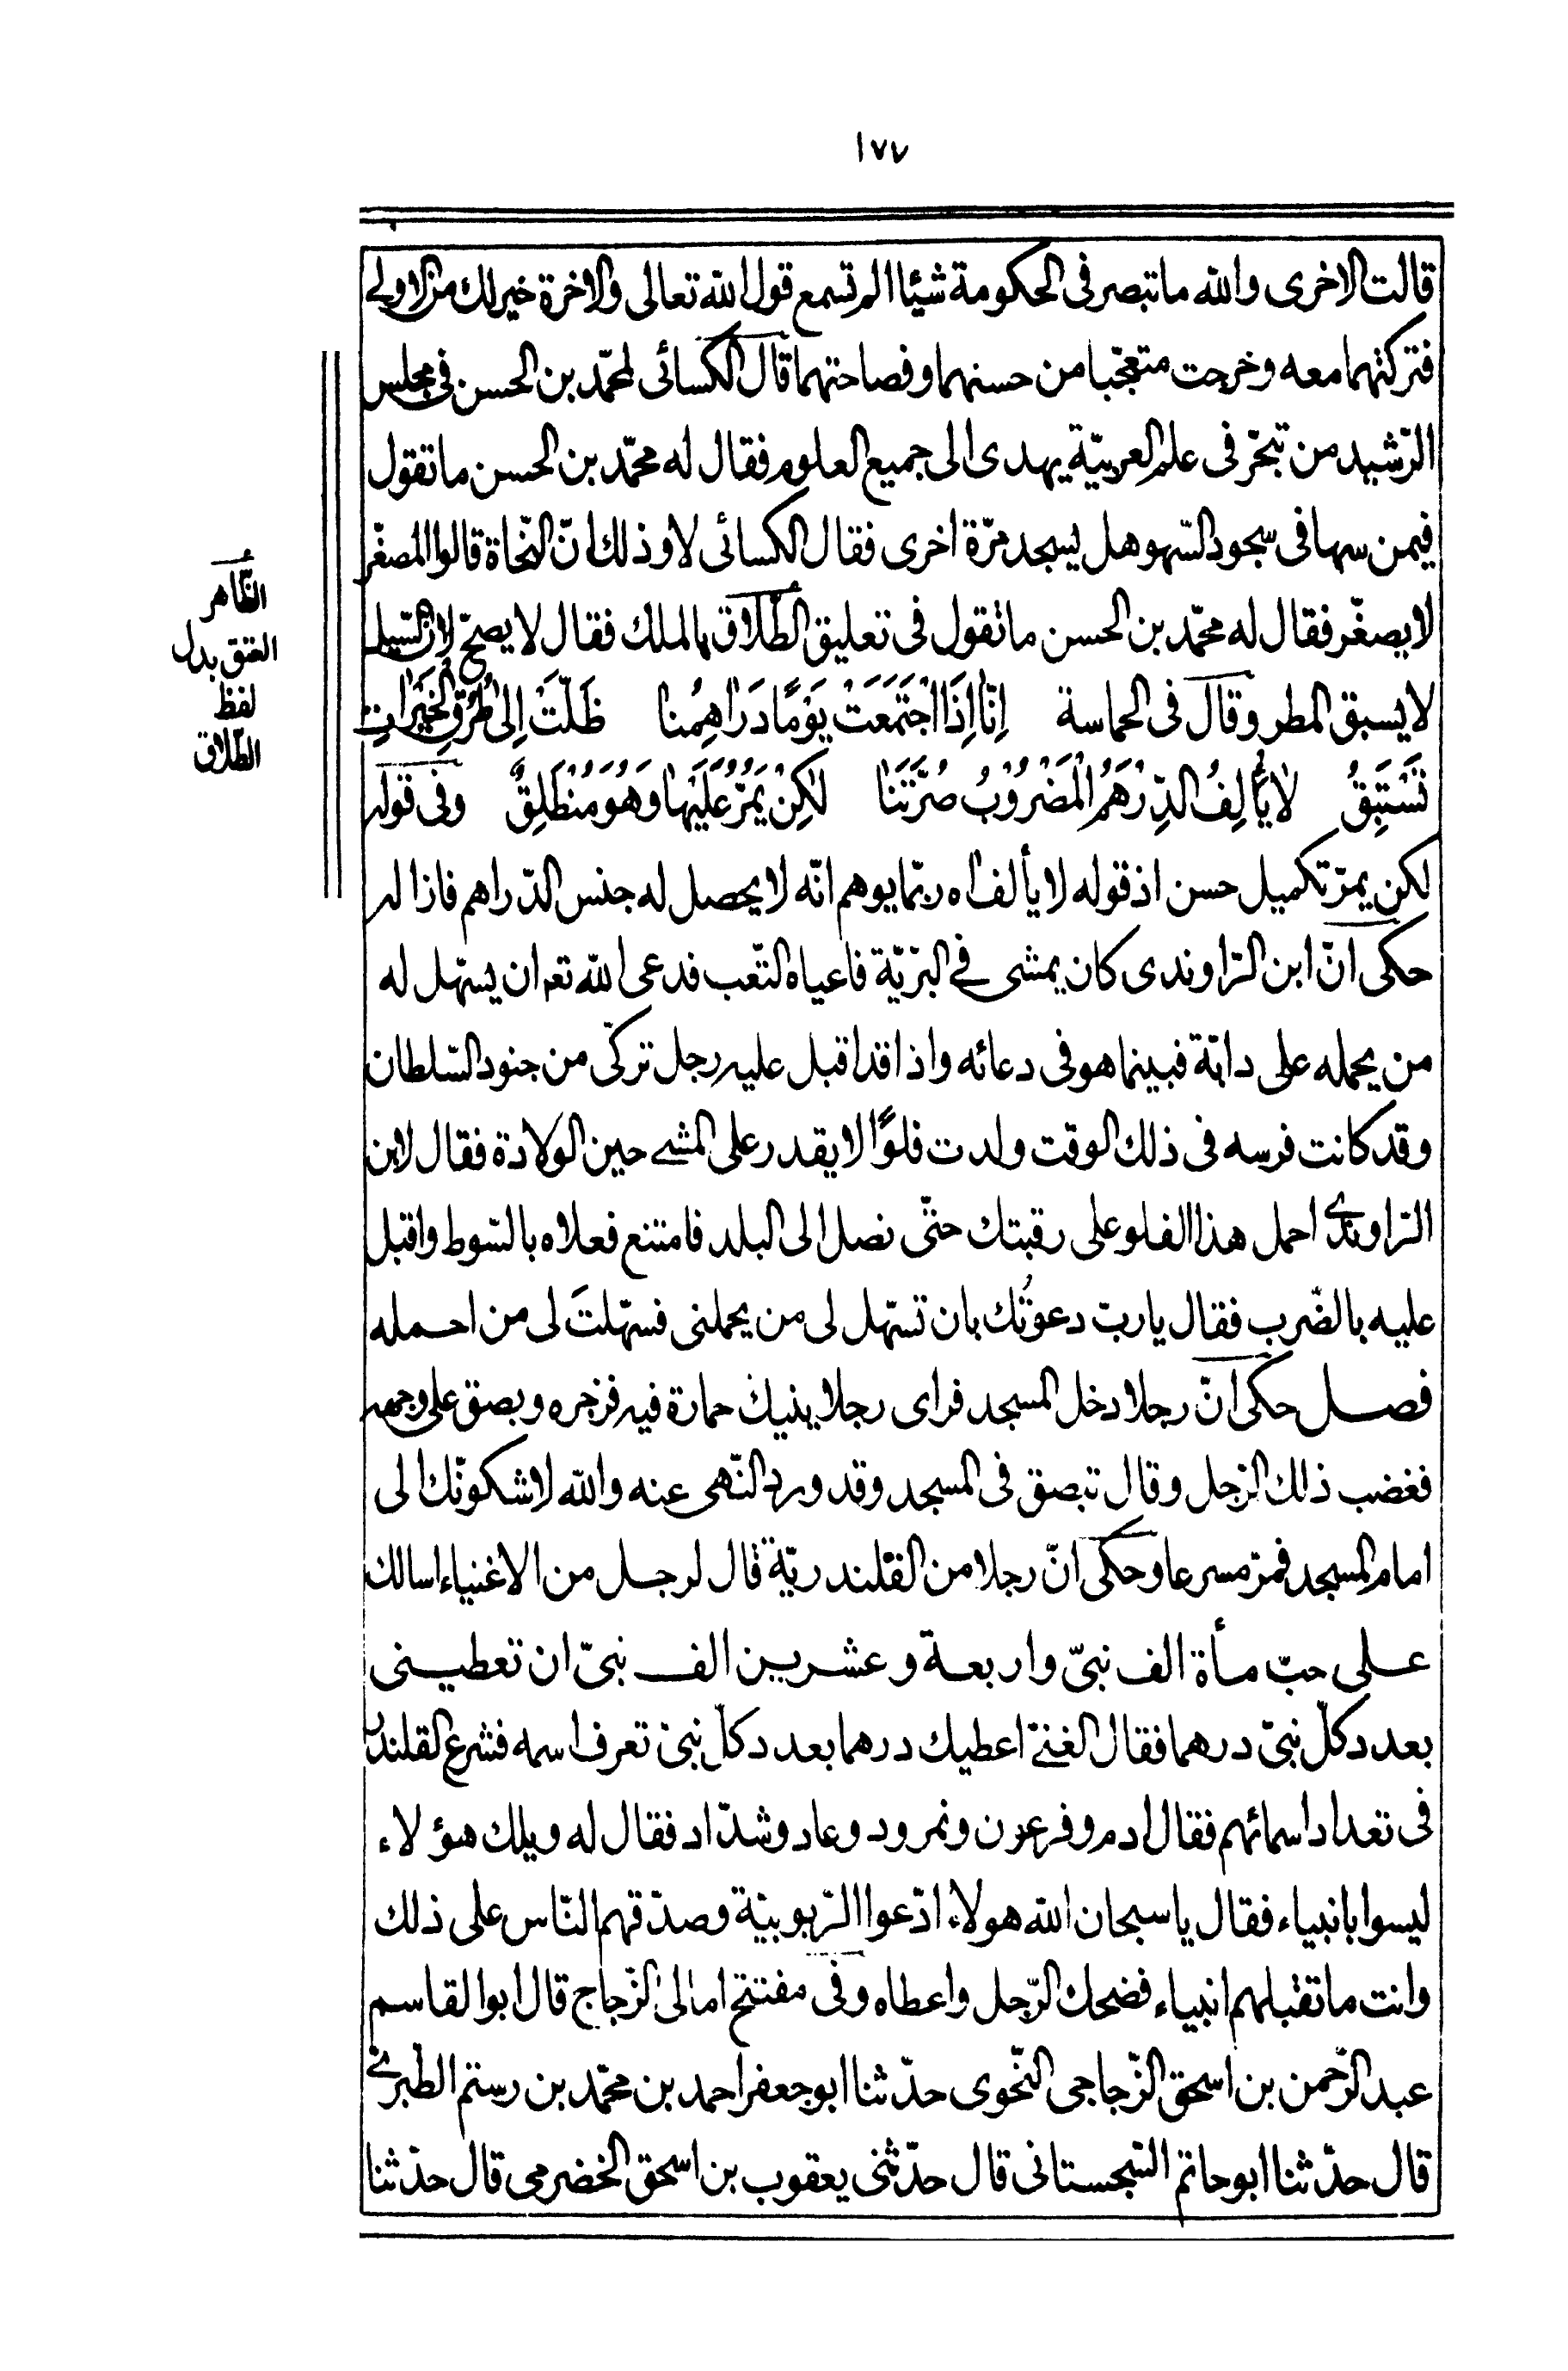 ١٧٧
قالت الاخرى والله ما تبصر فى الحكومة شيئا الم تسمع قول الله تعالى والاخرة خير لك من الاولى
فتركتهما معه وخرجت متعجّبا من حسنهما وفصاحتهما قال الكسائى لمحمّد بن الحسن فى مجلس
الرّشيد من تبحّر فى علم العربيّة يهدى الى جميع العلوم فقال له محمّد بن الحسن ما تقول
فيمن سها فى سجود السّهو هل يسجد مرّة اخرى فقال الكسائى لا وذلك انّ النّحاة قالوا المصغّر
لا يصغّر فقال له محمّد بن الحسن ما تقول فى تعليق الطّلاق بالملك فقال لا يصحّ لانّ السّيل
لا يسبق المطر وقال فى الحماسة اِنّا اِذَا اجْتَمَعَتْ يَوْمًا دَرَاهِمُنا ظَلَّتْ اِلىٰ طُرُقِ الْخَيْرَاتِ
تَسْتَبِقُ لا يَأْلِفُ الدِّرْهَمُ الْمَضْرُوْبُ صُرَّتَنَا لٰكِنْ يَمُرُّ عَلَيْها وَهُوَ مُنْطَلِقٌ وفى قوله
لكن يمرّ تكميل حسن اذ قوله لا يألف اه ربّما يوهم انّه لا يحصل له جنس الدّراهم فازاله
حكى انّ ابن الرّاوندى كان يمشى فى البرّيّة فاعياه التّعب فدعى الله تعه ان يسّهل له
من يحمله على دابّة فبينما هو فى دعائه واذا قد اقبل عليه رجل تركّى من جنود السّلطان
وقد كانت فرسه فى ذلك الوقت ولدت فلوًّا لا يقدر على المشى حين الولادة فقال لابن
الرّاوندى احمل هذا الفلو على رقبتك حتّى نصل الى البلد فامتنع فعلاه بالسّوط واقبل
عليه بالضّرب فقال يا ربّ دعوتُك بان تسّهل لى من يحملنى فسهّلتَ لى من احمله
فصل حكى انّ رجلا دخل المسجد فراى رجلا ينيك حمارة فيه فزجره وبصق على وجهه
فغضب ذلك الرّجل وقال تبصق فى المسجد وقد ورد النّهى عنه والله لاشكونّك الى
امام المسجد فمرّ مسرعا وحكى انّ رجلا من القلندريّة قال لرجل من الاغنياء اسالك
على حبّ مأة الف نبىّ واربعة وعشرين الف نبىّ ان تعطينى
بعدد كلّ نبىّ درهما فقال الغنىّ اعطيك درهما بعدد كلّ نبىّ تعرف اسمه فشرع القلندر
فى تعداد اسمائهم فقال ادم وفرعون ونمرود وعاد وشدّاد فقال له ويلك هؤلاء
ليسوا بانبياء فقال يا سبحان الله هولاء ادّعوا الرّبوبيّة وصدّقهم النّاس على ذلك
وانت ما تقبلهم انبياء فضحك الرّجل واعطاه وفى مفتتح امالى الزّجاج قال ابوالقاسم
عبد الرّحمن بن اسحق الزّجاجى النّحوى حدّثنا ابوجعفر احمد بن محمّد بن رستم الطّبرى
قال حدّثنا ابوحاتم السّجستانى قال حدّثنى يعقوب بن اسحق الخضرمى قال حدّثنا
الظّاهر
العتق بدل
لفظ
الطّلاق